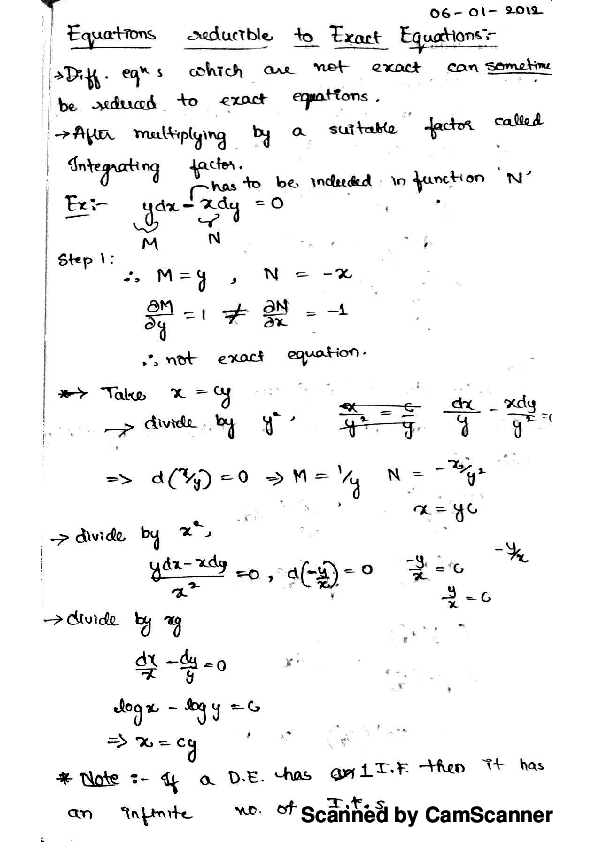 06-01-2012
Equations reducible to Exact Equations:-
→Diff. eqn s which are not exact can sometime
be reduced to exact equations.
→After multiplying by a suitable factor called
Integrating factor.
has to be included in function 'N'
Ex:- ydx - xdy = 0
M N
Step 1:
∴ M = y , N = -x
∂M/∂y = 1 ≠ ∂N/∂x = -1
∴ not exact equation.
*→ Take x = cy
→ divide by y², x/y² = c/y dx/y - xdy/y² = 0
=> d(x/y) = 0 => M = 1/y N = -x/y²
x = yc
→ divide by x²,
ydx - xdy/x² = 0, d(-y/x) = 0 -y/x = c -y/x
y/x = c
→ divide by xy
dx/x - dy/y = 0
log x - log y = c
=> x = cy
* Note :- If a D.E. has 1 I.F. then it has
an infinite no. of I.F.s
Scanned by CamScanner